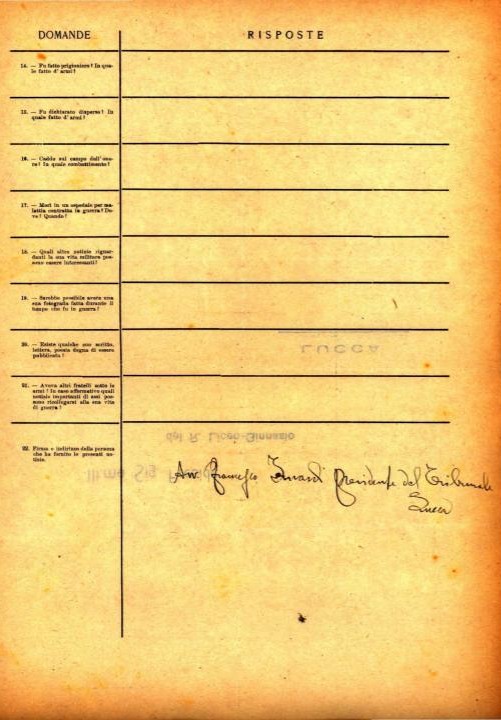 DOMANDE
RISPOSTE
14. — Fu fatto prigioniero? In qua-
le fatto d'armi?
15. — Fu dichiarato disperso? In
quale fatto d'armi?
16. — Cadde sul campo dell'ono-
re? In quale combattimento?
17. — Morì in un ospedale per ma-
lattia contratta in guerra? Do-
ve? Quando?
18. — Quali altre notizie riguar-
danti la sua vita militare pos-
sono essere interessanti?
19. — Sarebbe possibile avere una
sua fotografia fatta durante il
tempo che fu in guerra?
20. — Esiste qualche suo scritto,
lettera, poesia degna di essere
pubblicata?
LUCCA
21. — Aveva altri fratelli sotto le
armi? In caso affermativo quali
notizie importanti di essi pos-
sono ricollegarsi alla sua vita
di guerra?
del R. Liceo-Ginnasio
22. Firma e indirizzo della persona
che ha fornito le presenti no-
tizie.
Ill.mo Sig.
Avv Francesco Presidente del Tribunale
Lucca